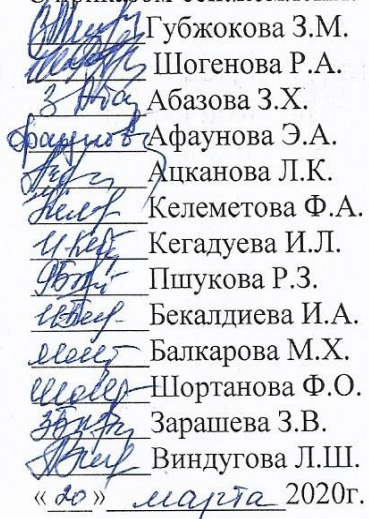 Губжокова З.М.
Шогенова Р.А.
Абазова З.Х.
Афаунова Э.А.
Ацканова Л.К.
Келеметова Ф.А.
Кегадуева И.Л.
Пшукова Р.З.
Бекалдиева И.А.
Балкарова М.Х.
Шортанова Ф.О.
Зарашева З.В.
Виндугова Л.Ш.
«20» марта 2020г.